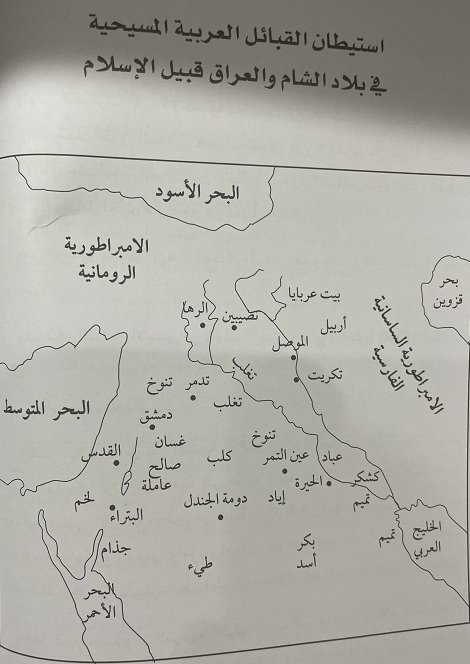 استيطان القبائل العربية المسيحية
في بلاد الشام والعراق قبيل الإسلام
البحر الأسود
الامبراطورية
الرومانية
بحر
قزوين
بيت عربايا
الرها
نصيبين
أربيل
الموصل
الامبراطورية الساسانية
الفارسية
تغلب
تكريت
تنوخ
تدمر
البحر المتوسط
تغلب
دمشق
غسان
تنوخ
القدس
صالح
كلب
عين التمر
عباد
عاملة
كشكر
الحيرة
لخم
دومة الجندل
إياد
تميم
البتراء
الخليج
العربي
تميم
جذام
بكر
أسد
طيء
البحر
الأحمر